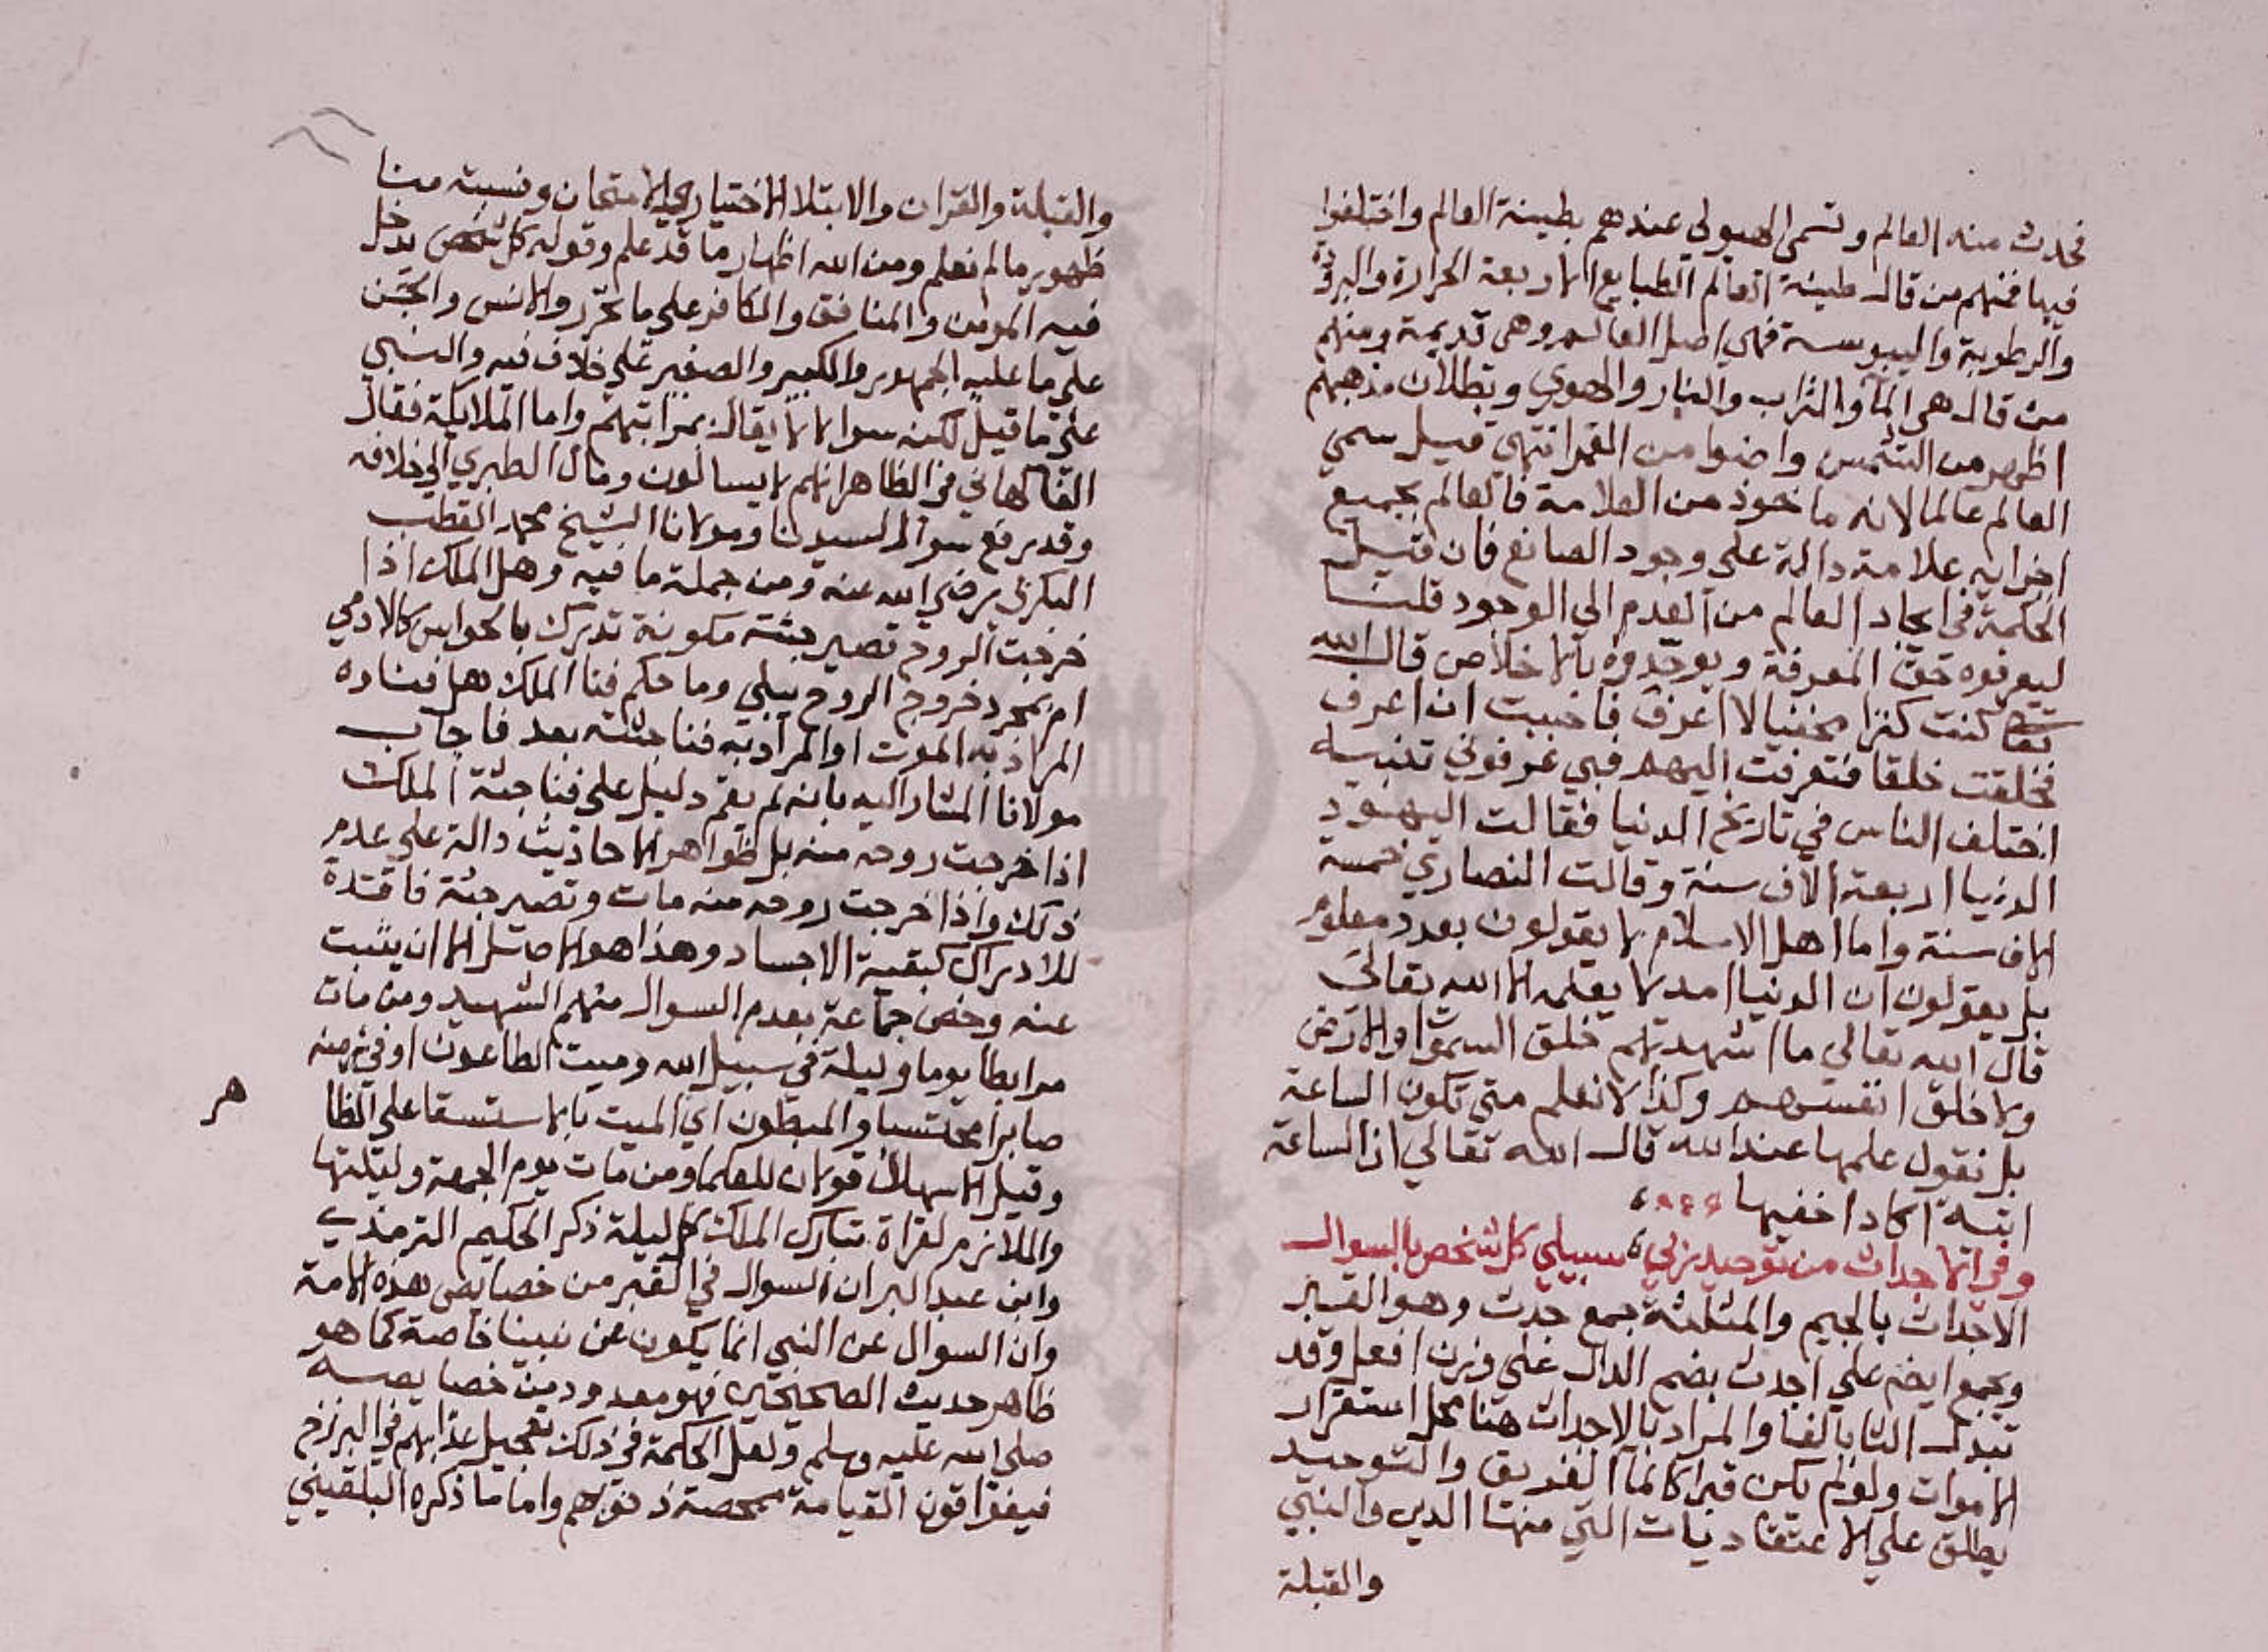 فحدث منه العالم وتسمى الهيولي عندهم بطينة العالم واختلفوا
فيها فمنهم من قال طينة العالم الطبايع الاربعة الحرارة والبرودة
والرطوبة واليبوسة فهي اصل العالم وهي قديمة ومنهم
من قال هي المآ والتراب والنار والهوي وبطلان مذهبهم
اظهر من الشمس واضوا من القمر انتهي قيل سمي
العالم عالما لانه ماخوذ من العلامة فالعالم بجميع
اجزايه علامة دالة على وجود الصانع فان قيل
الحكمة في ايجاد العالم من العدم الي الوجود قلت
ليعرفوه حق المعرفة ويوحدوه بالاخلاص قال الله
تعا كنت كنزا مخفيا لا اعرف فاحببت ان اعرف
فخلقت خلقا فتعرفت اليهم فبي عرفوني تنبيه
اختلف الناس في تاريخ الدنيا فقالت اليهود
الدنيا اربعة الاف سنة وقالت النصاري خمسة
الاف سنة واما اهل الاسلام لا يقولون بعدد معلوم
بل يقولون ان الدنيا امد لا يعلمه الا الله تعالى
قال الله تعالي ما اشهدتهم خلق السموات والارض
ولا خلق انفسهم وكذا لا نعلم متي تكون الساعة
بل نقول علمها عند الله قال الله تعالي ان الساعة
اتية اكاد اخفيها
وفي الاجداث من توحيد ربي سيبلي كل شخص بالسوال
الاجداث بالجيم والمثلثة جمع جدث وهو القبر
ويجمع ايضا علي اجدث بضم الدال علي وزن افعل وقد
تبدل الثا بالفا والمراد بالاجداث هنا محل استقرار
الاموات ولو لم يكن قبرا كمآ الغريق والتوحيد
يطلق علي الاعتقاديات التي منها الدين والنبي
والقبلة
والقبلة والقران والابتلا الاختياري الامتحان ونسبته منا
ظهور ما لم نعلم ومن الله اظهار ما قد علم وقوله كل شخص يدخل
فيه المومن والمنافق والكافر علي ما تحرر والانس والجن
علي ما عليه الجمهور والكبير والصغير علي خلاف فيه والنبي
علي ما قيل لكنه سوال لا يقال بمراتبهم واما الملايكة فقال
الفاكهاني في الظاهر انهم لا يسالون ومال الطبري الي خلافه
وقد رفع سوال لسيدنا ومولانا الشيخ محمد القطب
البكري رضي الله عنه ومن جملة ما فيه وهل الملك اذا
خرجت الروح تصير جثته مكونة تدرك بالحواس كالادمي
ام بمجرد خروج الروح يبلي وما حكم فنا الملك هل فساده
المراد به الموت او المراد به فنا جثته بعد فاجاب
مولانا المشار اليه بانه لم يقم دليل علي فنا جثة الملك
اذا خرجت روحه منه بل ظواهر الاحاديث دالة علي عدم
ذلك واذا خرجت روحه منه مات وتصير جثة فاقدة
للادراك كبقية الاجساد وهذا هو الاصل الا ان يثبت
عنه وخص جماعة بعدم السوال منهم الشهيد ومن مات
مرابطا يوما وليلة في سبيل الله وميت الطاعون او في زمنه
صابرا محتسبا والمبطون اي الميت بالاستسقا علي الظا
هر
وقيل الاسهال قولان للعلما ومن مات يوم الجمعة وليلتها
والملازم لقراة تبارك الملك كل ليلة ذكر الحكيم الترمذي
وابن عبد البر ان السوال في القبر من خصايص هذه الامة
وان السوال عن النبي انما يكون عن نبينا خاصة كما هو
ظاهر حديث الصحيحين فهو معدود من خصايصه
صلي الله عليه وسلم ولعل الحكمة في ذلك تعجيل عذابهم في البرزخ
فيفوا قون القيامة ممحصة ذنوبهم واما ما ذكره البلقيني